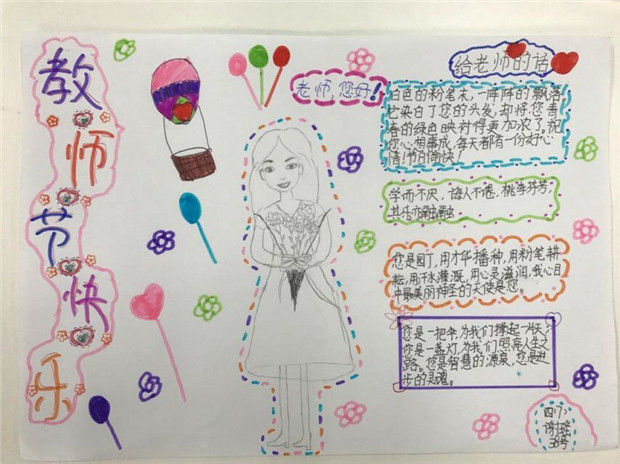 教师节快乐
老师,您好!
给老师的话
白色的粉笔末,一阵阵的飘落,
它染白了您的头发,却将您青
春的绿色映衬得更加浓了。祝
您心想事成,每天都有一份好心
情!节日愉快!
学而不厌,诲人不倦,桃李芬芳,
其乐亦融融。
您是园丁,用才华播种,用粉笔耕
耘,用汗水灌溉,用心灵滋润,我心目
中最美丽神圣的天使是您。
您是一把伞,为我们撑起一片天;
您是一盏灯,为我们照亮人生之
路。您是智慧的源泉,您是进
步的灵魂。
四(7)
38号